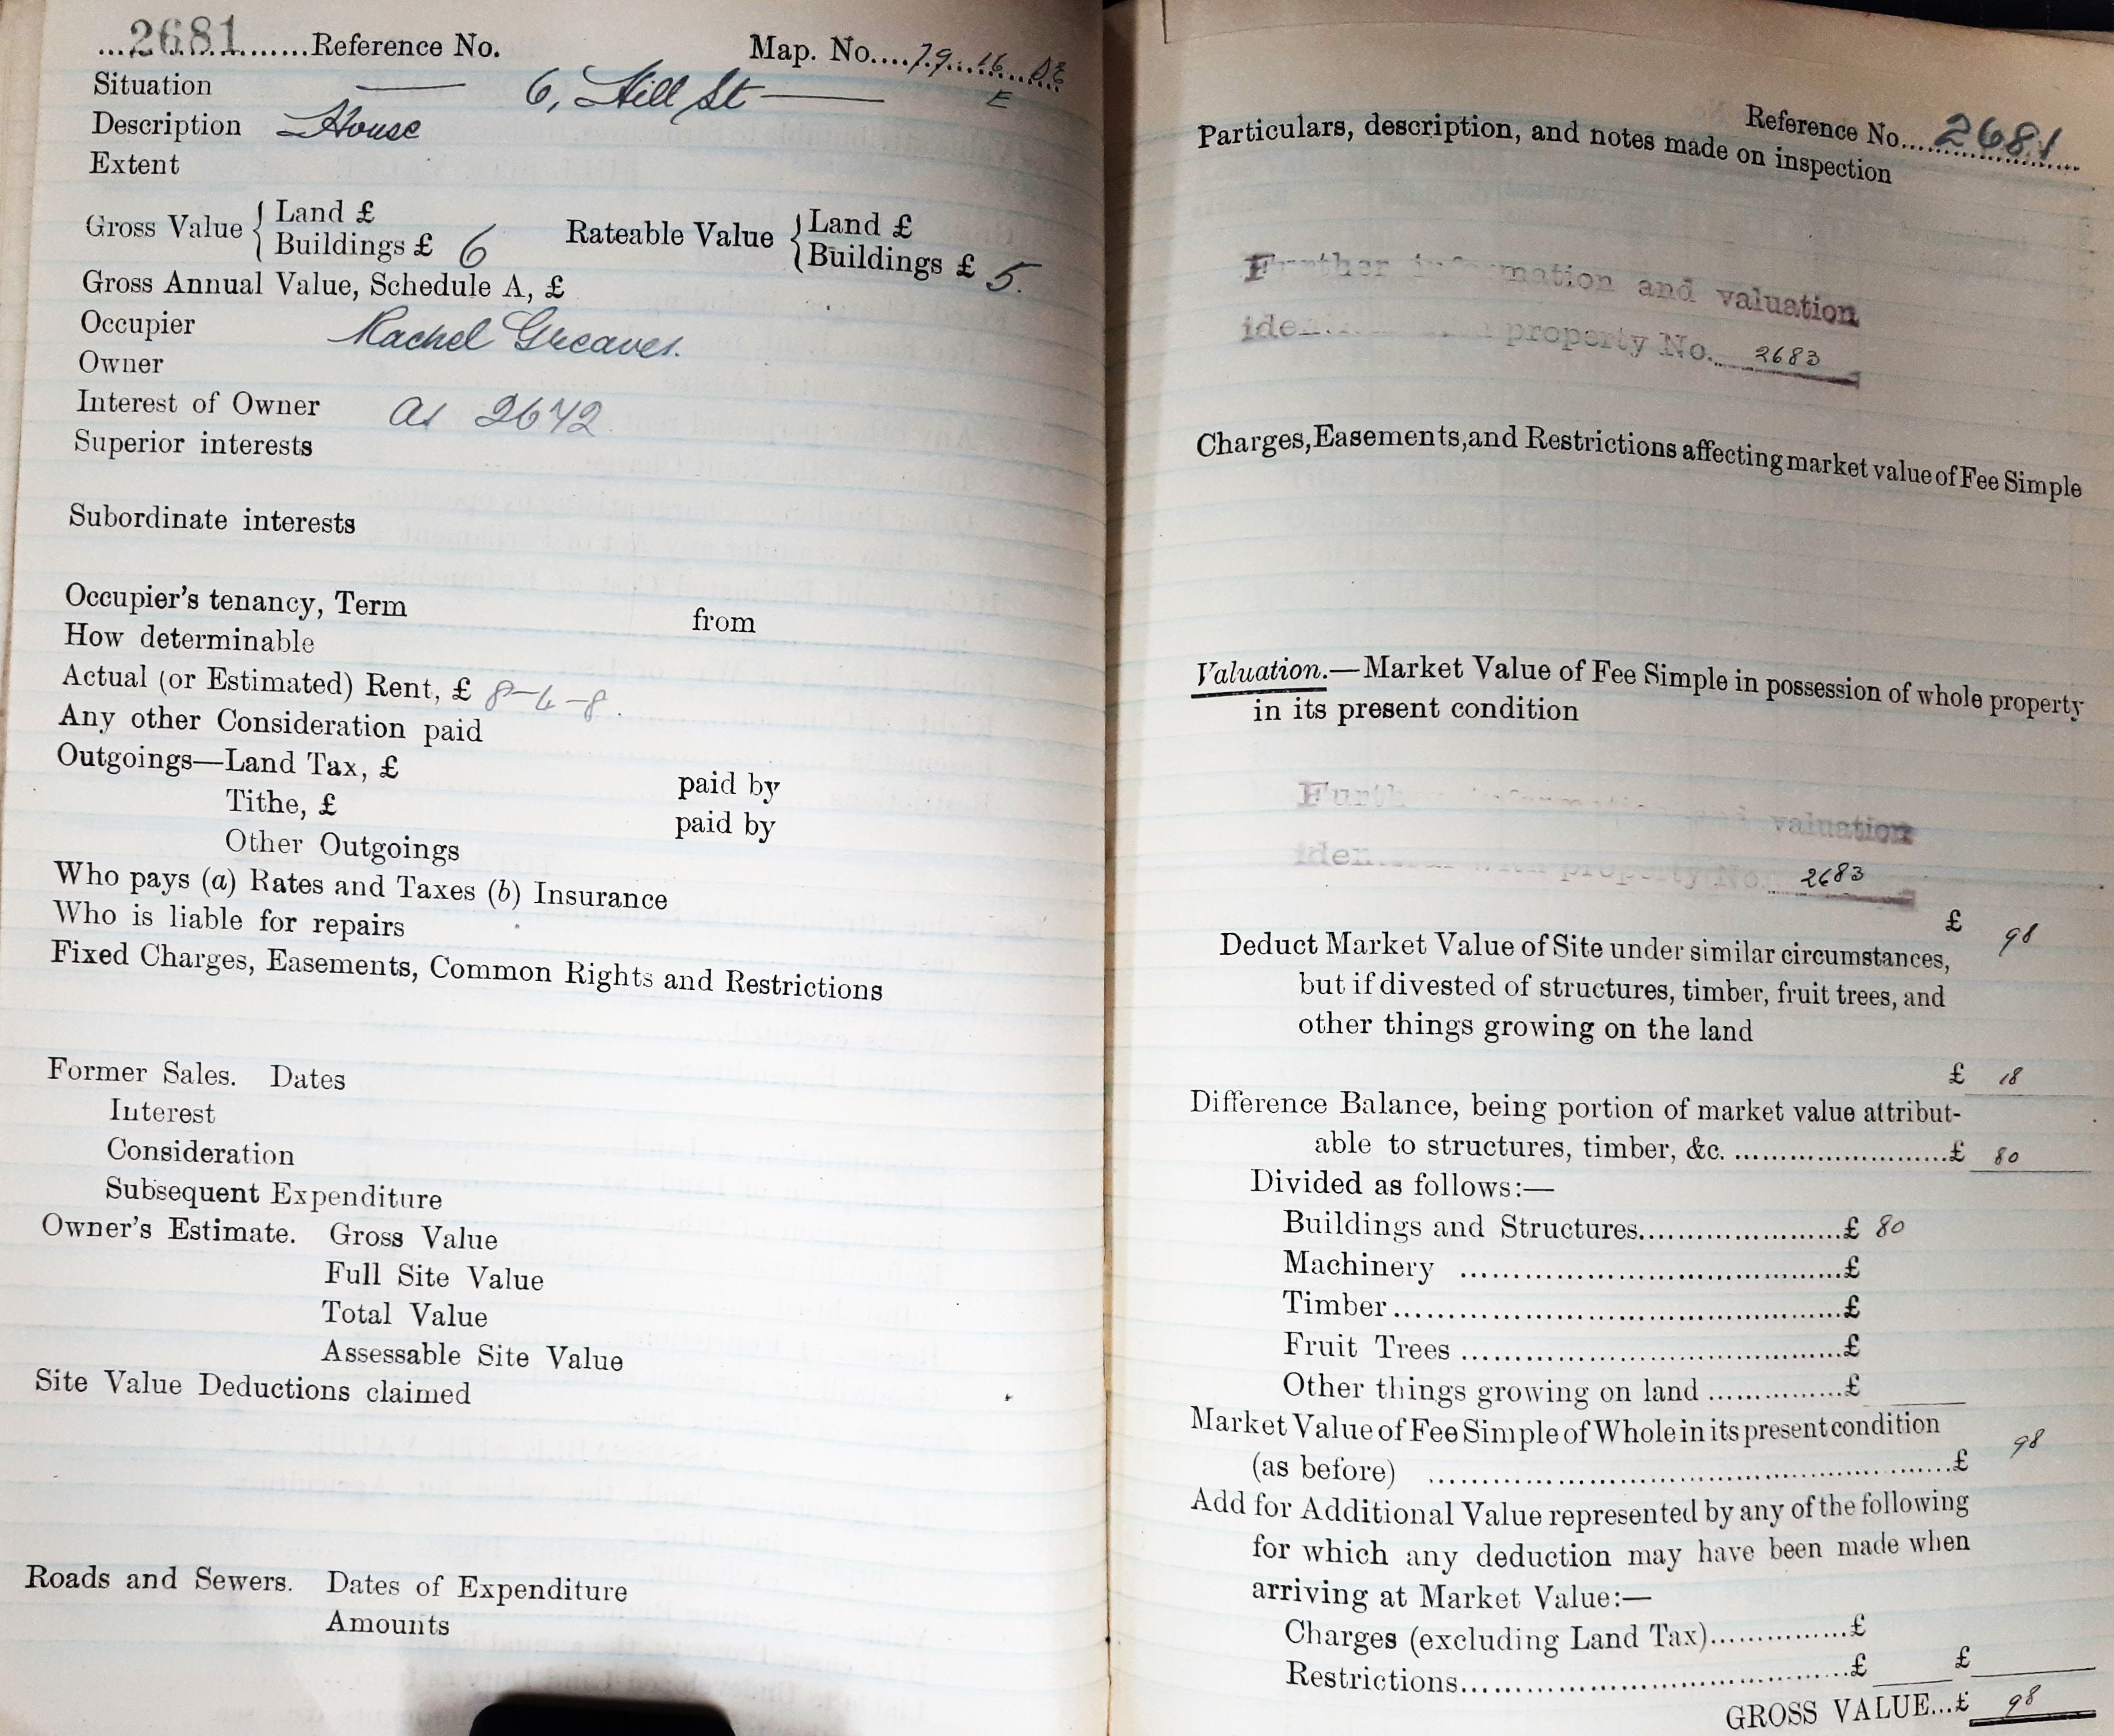 ...2681...........Reference No.
Map. No....79...16... DE
E
Situation — 6, Hill St —
Description House
Extent
Gross Value { Land £
Buildings £ 6
Rateable Value { Land £
Buildings £ 5.
Gross Annual Value, Schedule A, £
Occupier Rachel Greaves.
Owner
Interest of Owner as 2642
Superior interests
Subordinate interests
Occupier's tenancy, Term from
How determinable
Actual (or Estimated) Rent, £ 8-4-8.
Any other Consideration paid
Outgoings—Land Tax, £ paid by
Tithe, £ paid by
Other Outgoings
Who pays (a) Rates and Taxes (b) Insurance
Who is liable for repairs
Fixed Charges, Easements, Common Rights and Restrictions
Former Sales. Dates
Interest
Consideration
Subsequent Expenditure
Owner's Estimate. Gross Value
Full Site Value
Total Value
Assessable Site Value
Site Value Deductions claimed
Roads and Sewers. Dates of Expenditure
Amounts
Reference No....2681....
Particulars, description, and notes made on inspection
Further information and valuation
identical with property No. 2683
Charges, Easements, and Restrictions affecting market value of Fee Simple
Valuation.—Market Value of Fee Simple in possession of whole property
in its present condition
Further information and valuation
identical with property No. 2683
£ 98
Deduct Market Value of Site under similar circumstances,
but if divested of structures, timber, fruit trees, and
other things growing on the land
£ 18
Difference Balance, being portion of market value attribut-
able to structures, timber, &c. ........................£ 80
Divided as follows:—
Buildings and Structures.......................£ 80
Machinery ...........................................£
Timber...................................................£
Fruit Trees ...........................................£
Other things growing on land ...............£
Market Value of Fee Simple of Whole in its present condition
(as before) ............................................................£ 98
Add for Additional Value represented by any of the following
for which any deduction may have been made when
arriving at Market Value:—
Charges (excluding Land Tax)...............£
Restrictions...........................................£ £
GROSS VALUE...£ 98